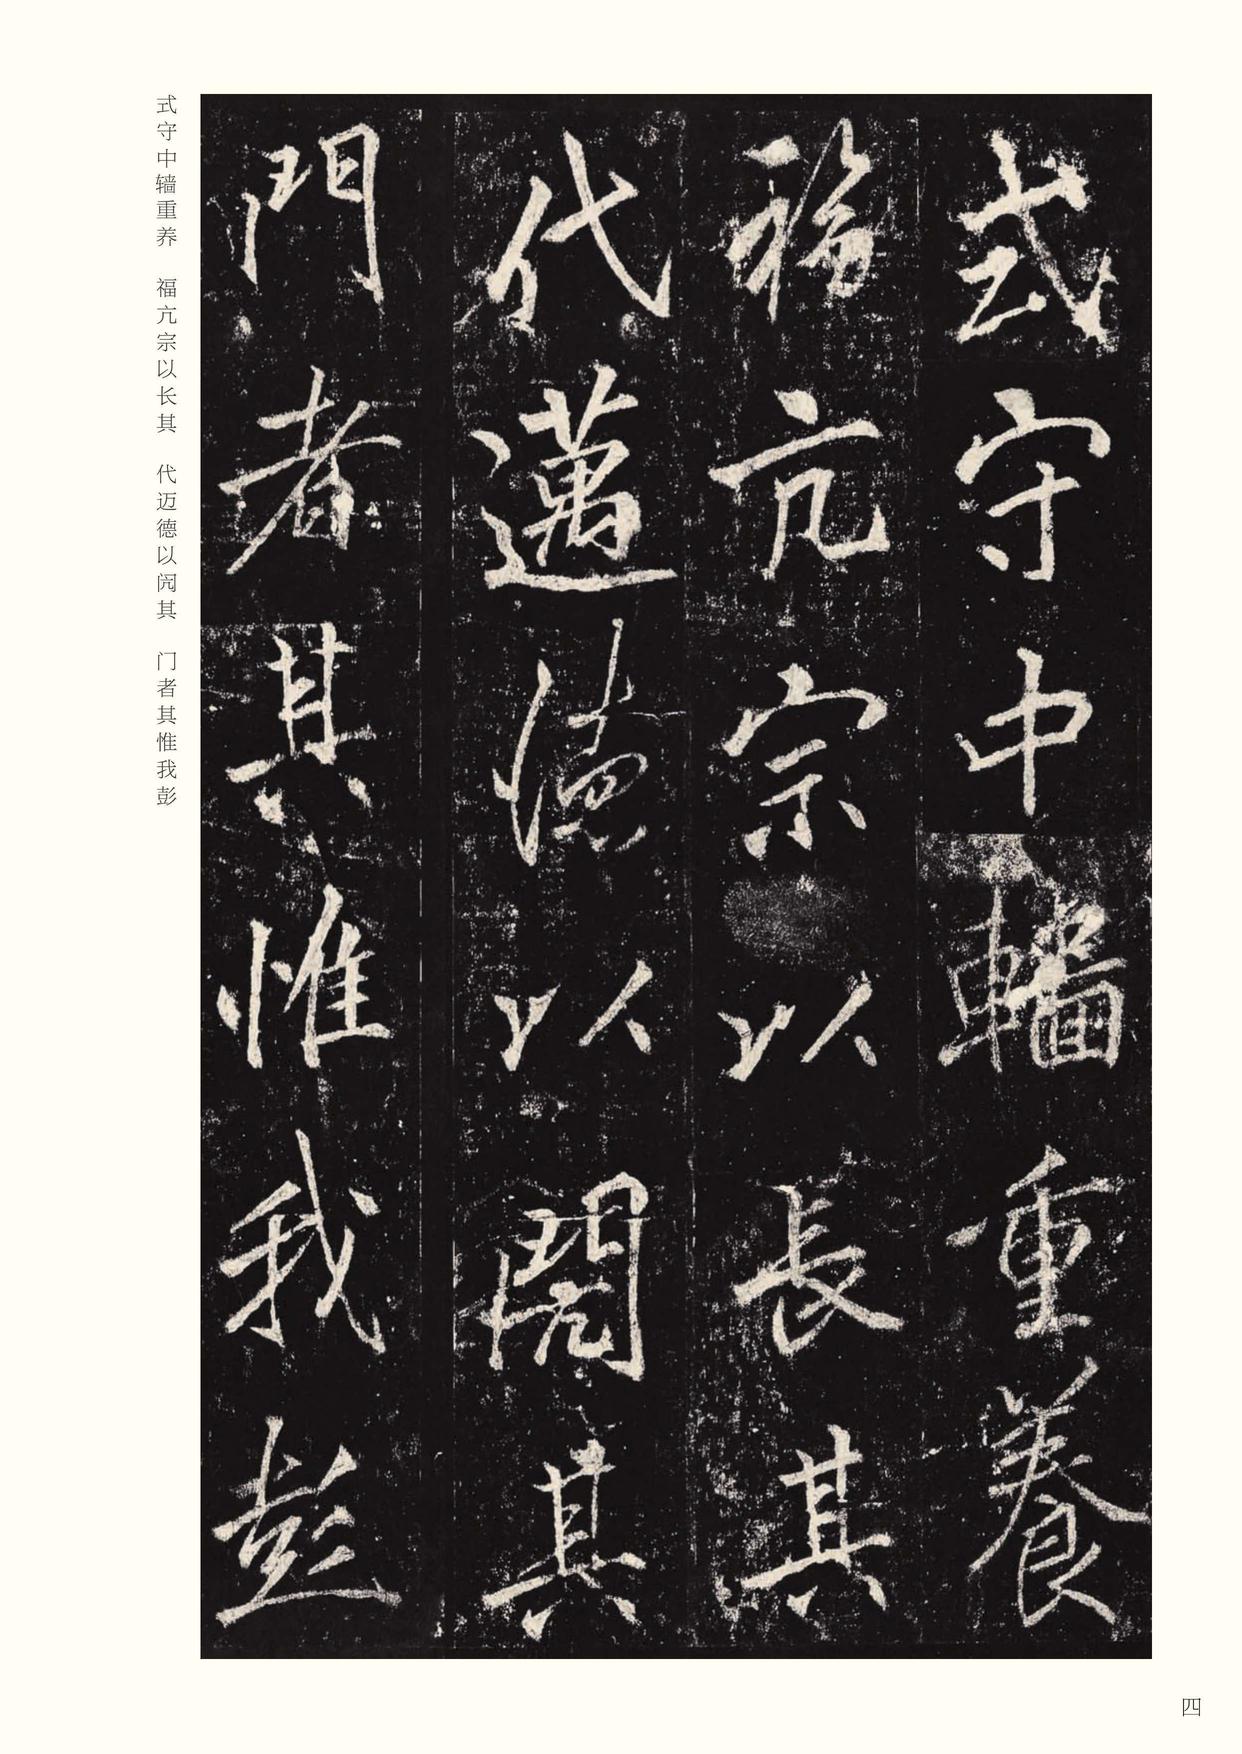 式守中轖重養
福亢宗以長其
代邁德以閌其
門者其惟我彭
式守中轖重养　福亢宗以长其　代迈德以闶其　门者其惟我彭
四